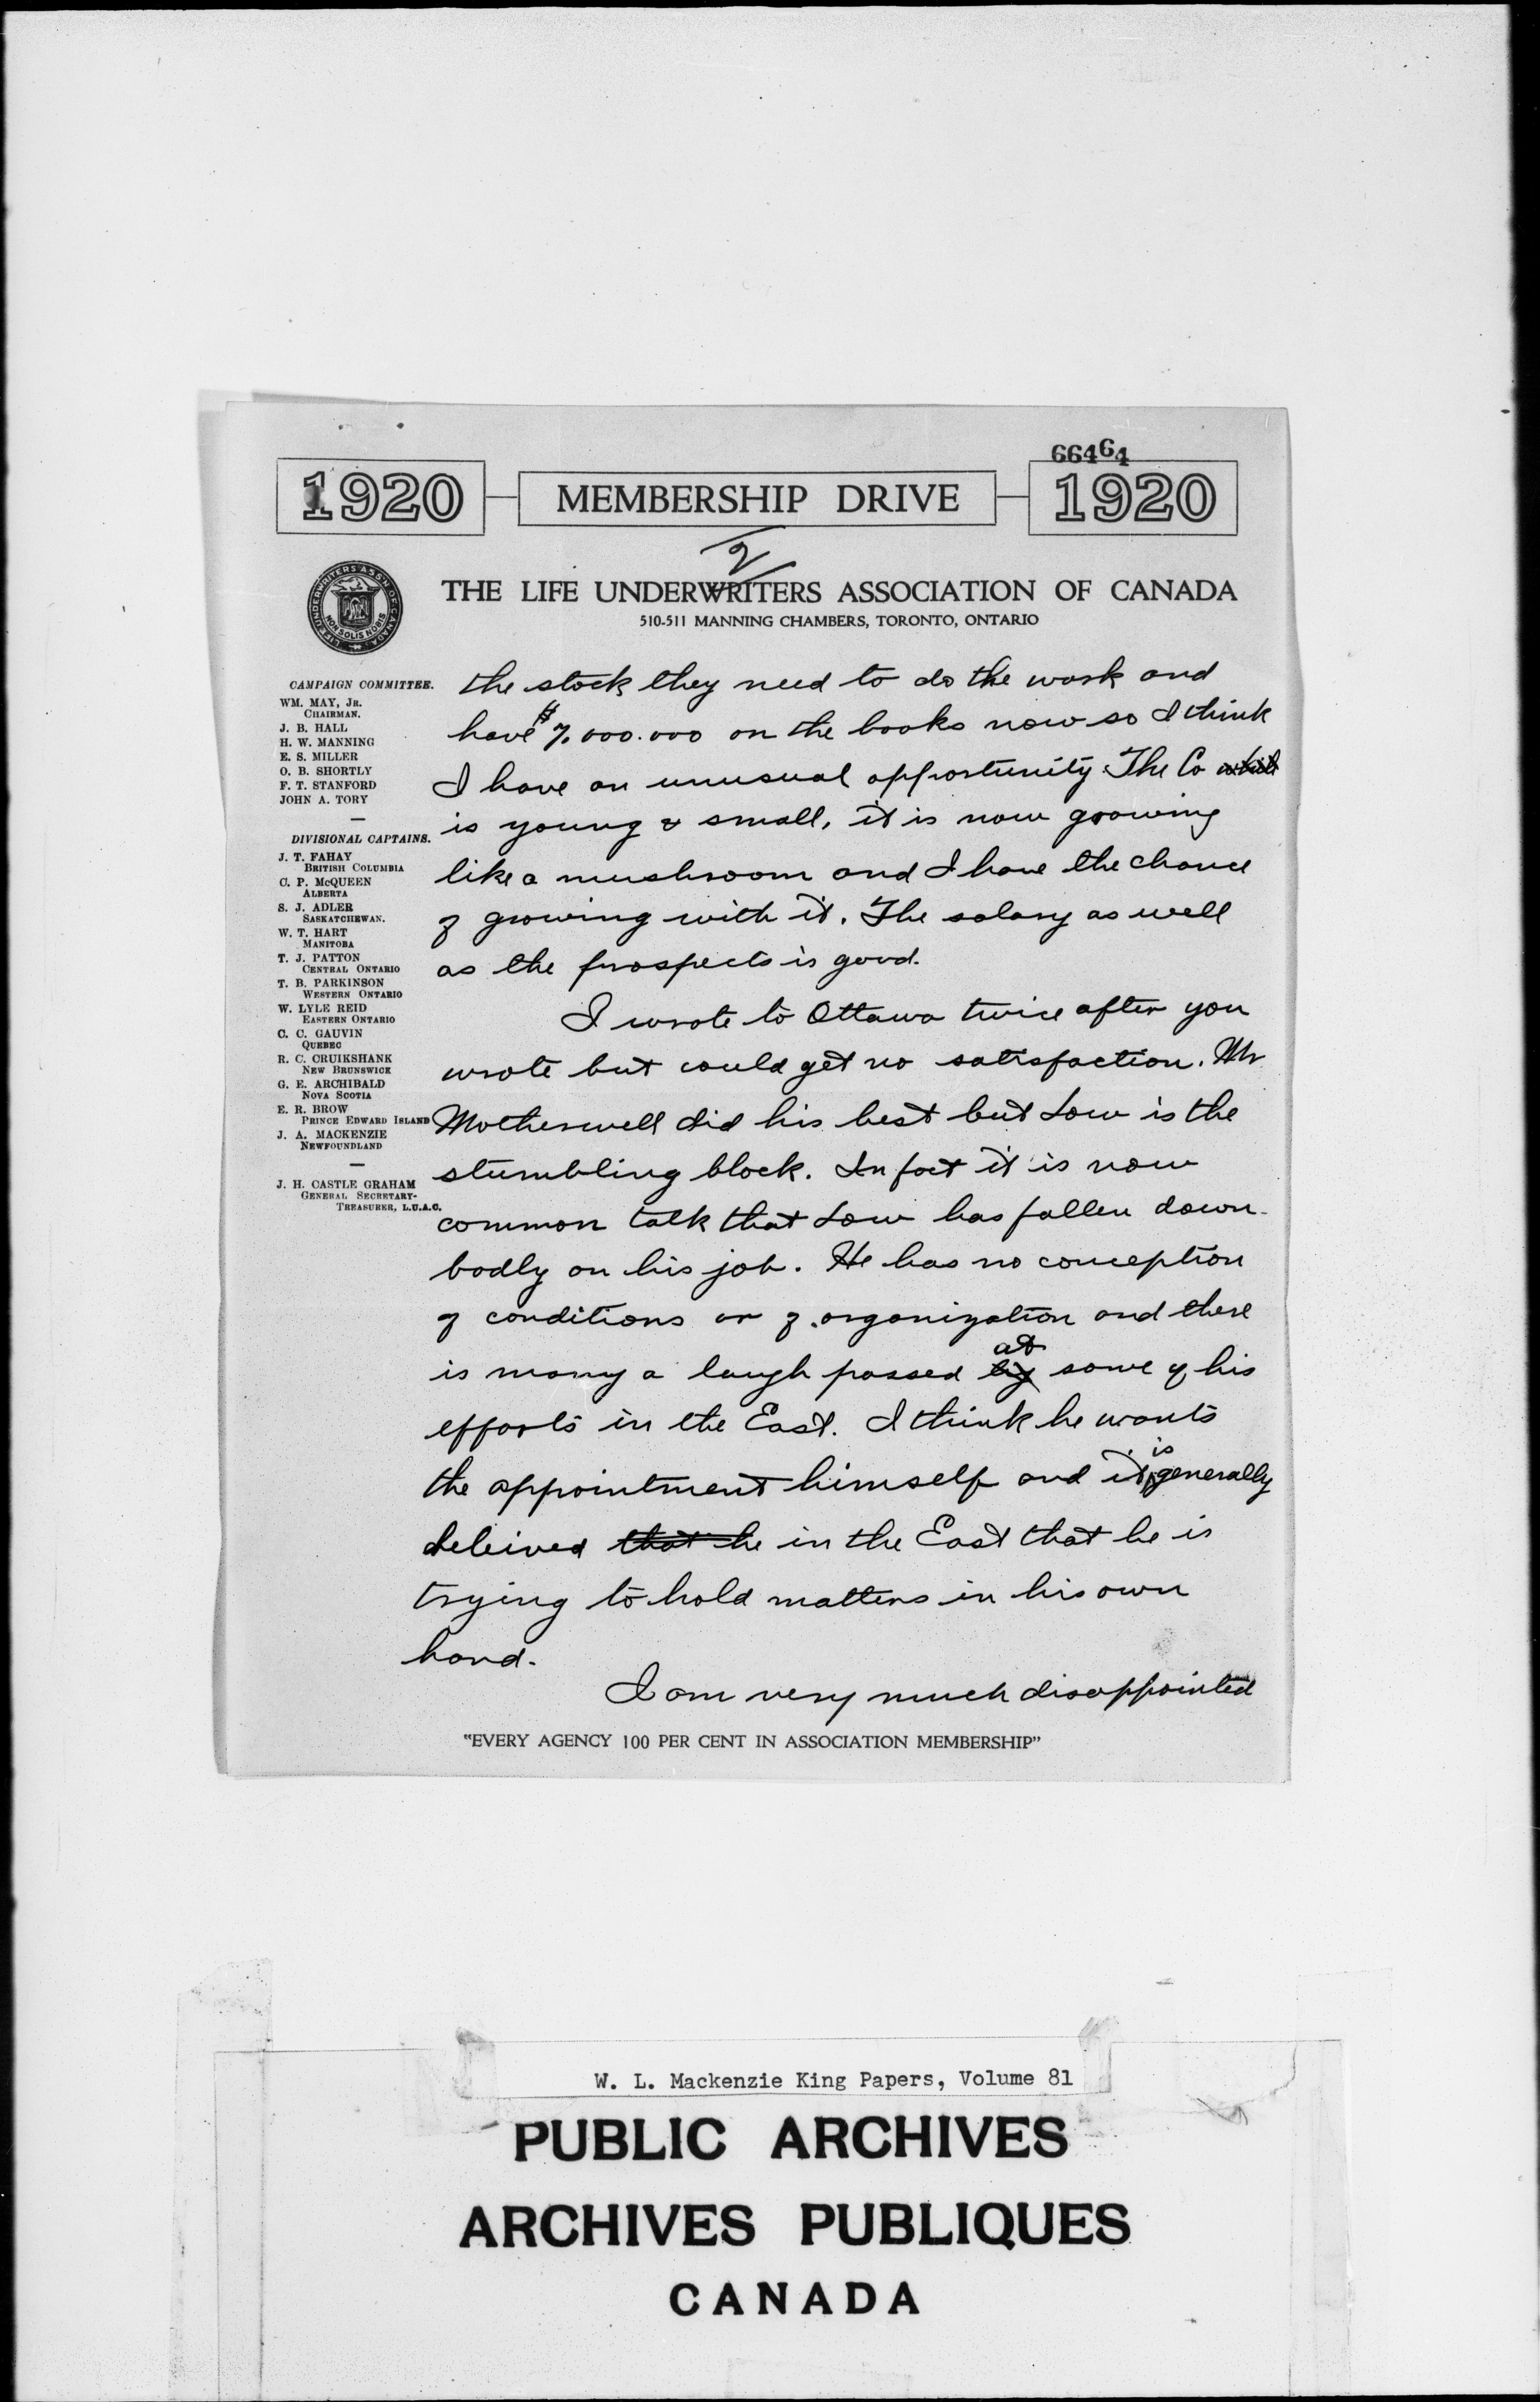 66464
1920 MEMBERSHIP DRIVE 1920
2
THE LIFE UNDERWRITERS ASSOCIATION OF CANADA
510-511 MANNING CHAMBERS, TORONTO, ONTARIO
LIFE UNDERWRITERS ASS'N OF CANADA
NON SOLIS NOBIS
CAMPAIGN COMMITTEE.
WM. MAY, JR.
CHAIRMAN.
J. B. HALL
H. W. MANNING
E. S. MILLER
O. B. SHORTLY
F. T. STANFORD
JOHN A. TORY
DIVISIONAL CAPTAINS.
J. T. FAHAY
BRITISH COLUMBIA
C. P. McQUEEN
ALBERTA
S. J. ADLER
SASKATCHEWAN.
W. T. HART
MANITOBA
T. J. PATTON
CENTRAL ONTARIO
T. B. PARKINSON
WESTERN ONTARIO
W. LYLE REID
EASTERN ONTARIO
C. C. GAUVIN
QUEBEC
R. C. CRUIKSHANK
NEW BRUNSWICK
G. E. ARCHIBALD
NOVA SCOTIA
E. R. BROW
PRINCE EDWARD ISLAND
J. A. MACKENZIE
NEWFOUNDLAND
J. H. CASTLE GRAHAM
GENERAL SECRETARY-
TREASURER, L.U.A.C.
the stock they need to do the work and
have $7,000.000 on the books now so I think
I have an unusual opportunity. The Co which
is young & small, it is now growing
like a mushroom and I have the chance
of growing with it. The salary as well
as the prospects is good.
I wrote to Ottawa twice after you
wrote but could get no satisfaction. Mr
Motherwell did his best but Low is the
stumbling block. In fact it is now
common talk that Low has fallen down
badly on his job. He has no conception
of conditions or of organization and there
is many a laugh passed by at some of his
efforts in the East. I think he wants
the appointment himself and it is generally
beleived that he in the East that he is
trying to hold matters in his own
hand.
I am very much disappointed
"EVERY AGENCY 100 PER CENT IN ASSOCIATION MEMBERSHIP"
W. L. Mackenzie King Papers, Volume 81
PUBLIC ARCHIVES
ARCHIVES PUBLIQUES
CANADA